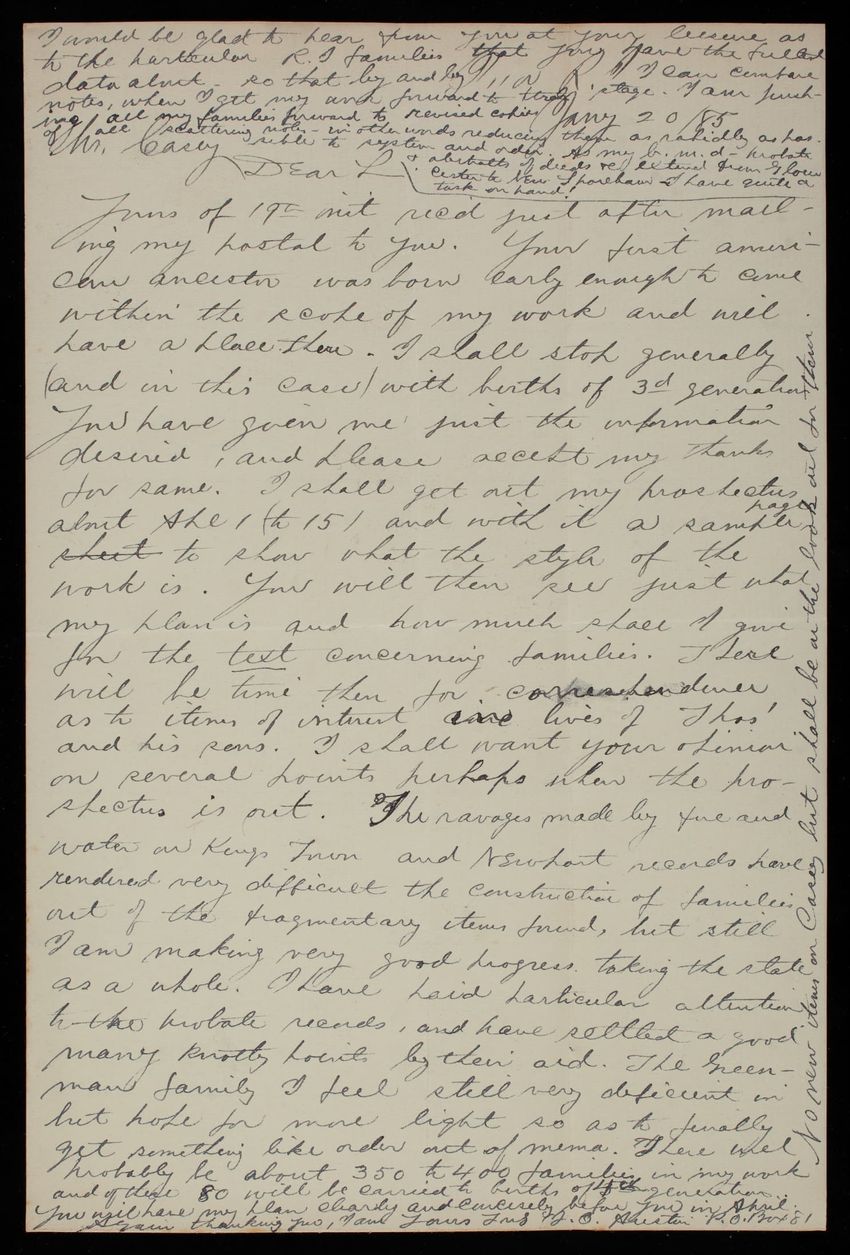 I would be glad to hear from you at your leisure as
to the particular R. I families that you have the fullest
data about - so that by and by I can compare
notes, when I get my work forward to that stage. I am push-
ing all my families forward to revised copies
of all scattering notes - in other words reducing them as rapidly as pos-
sible to system and order. As my b. m. d - probate
& abstracts of deeds &c extend from Glou
cester to New Shoreham I have quite a
task on hand!
Jany 20/85
Mr. Casey
Dear Sir
Yours of 19th inst rec'd just after mail-
ing my postal to you. Your first ameri-
can ancestor was born early enough to come
within the scope of my work and will
have a place there. I shall stop generally
(and in this case) with births of 3d generation
You have given me just the information
desired, and please accept my thanks
for same. I shall get out my prospectus
about Apl 1 (to 15) and with it a sample page
sheet to show what the style of the
work is. You will then see just what
my plan is and how much space I give
for the text concerning families. There
will be time then for correspondence
as to items of interest in lives of Thos'
and his sons. I shall want your opinion
on several points perhaps when the pro-
spectus is out. The ravages made by fire and
water on Kings Town and Newport records have
rendered very difficult the construction of families
out of the fragmentary items found, but still
I am making very good progress taking the state
as a whole. I have paid particular attention
to the probate records, and have settled a good
many knotty points by their aid. The Green-
man family I feel still very deficient in
but hope for more light so as to finally
get something like order out of mema. There will
probably be about 350 to 400 families in my work
and of these 80 will be carried to births of 4th generation.
You will have my plan clearly and concisely before you in April.
Again thanking you, I am Yours Truly J. O. Austin P.O. Box 81
No new items on Casey but shall be on the look out for them.